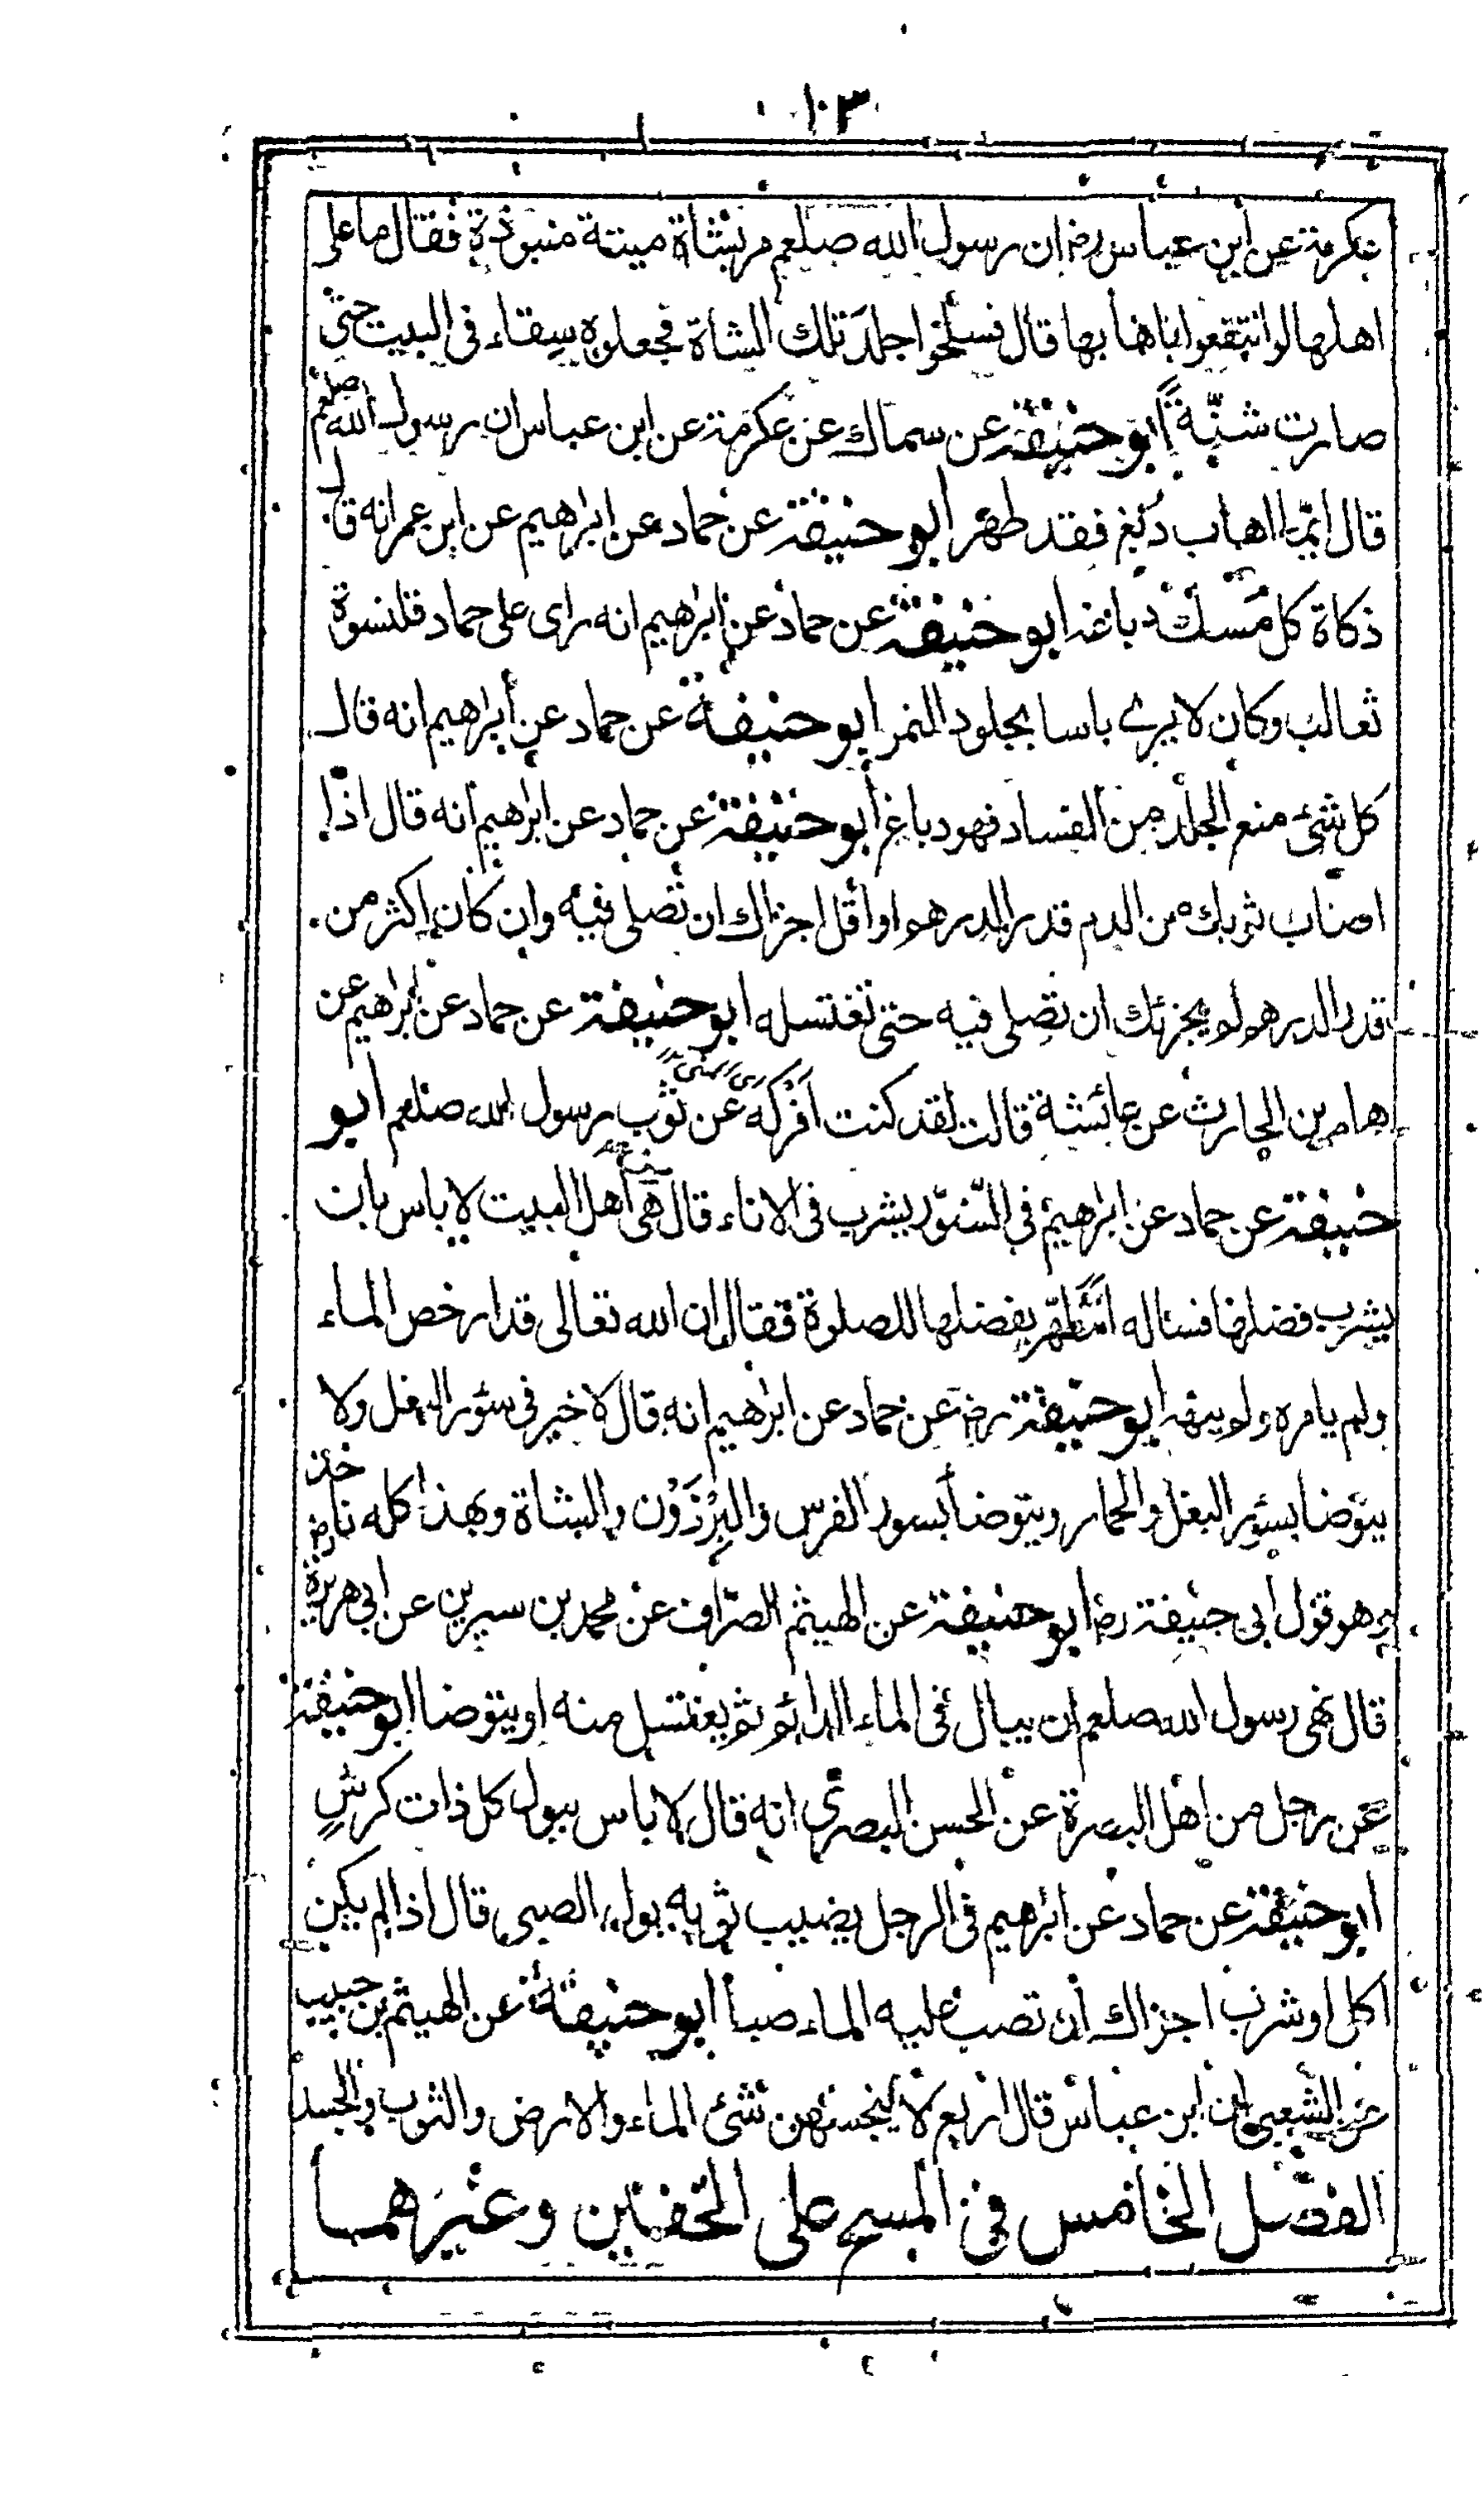 ١٠٣
عكرمة عن ابن عباس رض ان رسول الله صلعم مر بشاة ميتة منبوذة فقال ما على
اهلها لو انتفعوا باهابها قال فسلخوا جلد تلك الشاة فجعلوه سقاء فى البيت حتى
صارت شنّةً ابو حنيفة عن سماك عن عكرمة عن ابن عباس ان رسول الله صلعم
قال ايّما اهاب دُبغ فقد طهر ابو حنيفة عن حماد عن ابراهيم عن ابن عمر انه قال
ذكاة كل مَسك دباغه ابو حنيفة عن حماد عن ابراهيم انه راى على حماد قلنسوة
ثعالب وكان لا يرے باسا بجلود النمر ابو حنيفة عن حماد عن ابراهيم انه قال
كل شئ منع الجلد من الفساد فهو دباغ ابو حنيفة عن حماد عن ابراهيم انه قال اذا
اصاب ثوبك من الدم قدر الدرهم او اقل اجزاك ان تصلى فيه وان كان اكثر من
قدر الدرهم لم يجزئك ان تصلى فيه حتى تغتسله ابو حنيفة عن حماد عن ابراهيم عن
همام بن الحارث عن عائشة قالت لقد كنت اَفْركه عن ثوب رسول الله صلعم ابو
حنيفة عن حماد عن ابراهيم فى السّنّور يشرب فى الاناء قال هى اهل البيت لا باس بان
يشرب فضلها فساله ايتطهّر بفضلها للصلوة فقال ان الله تعالى قد ارخص الماء
ولم يامره ولم ينهه ابو حنيفة رض عن حماد عن ابراهيم انه قال لا خير فى سؤر البغل ولا
يتوضا بسؤر البغل والحمار ويتوضا بسور الفرس والبِرْذَوْن والشاة وبهذا كله ناخذ
وهو قول ابى حنيفة رض ابو حنيفة عن الهيثم الصرّاف عن محمد بن سيرين عن ابى هريرة رض
قال نهى رسول الله صلعم ان يبال فى الماء الدائم ثم يغتسل منه او يتوضا ابو حنيفة
عن رجل من اهل البصرة عن الحسن البصرى انه قال لا باس ببول كل ذات كرشٍ
ابو حنيفة عن حماد عن ابراهيم فى الرجل يصيب ثوبه بول الصبى قال اذا لم يكن
اكل او شرب اجزاك ان تصب عليه الماء صبا ابو حنيفة عن الهيثم بن حبيب
عن الشعبى عن ابن عباس قال اربع لا ينجسهن شئ الماء والارض والثوب والجسد
الفصل الخامس فى المسح على الخفين وغيرهما